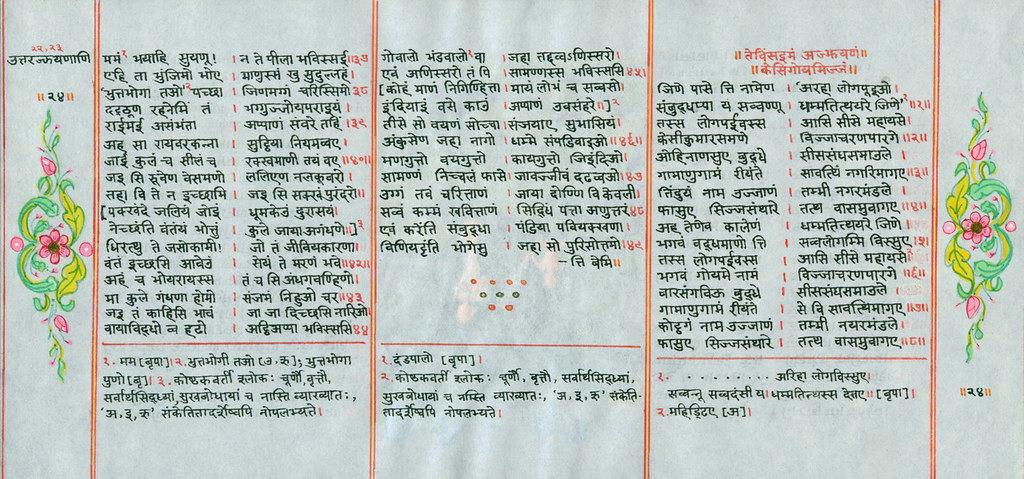 २२,२३
उत्तरज्झयणाणि
॥२४॥
ममं१ भयाहि सुयणू! । न ते पीला भविस्सई॥३७
एहि ता भुंजिमो भोए । माणुस्सं खु सुदुल्लहं।
भुत्तभोगा तओ२ पच्छा । जिणमग्गं चरिस्सिमो३८
दट्ठूण रहनेमिं तं । भग्गुज्जोयपराइयं।
राईमई असंभंता । अप्पाणं संवरे तहिं।३९
अह सा रायवरकन्ना । सुट्ठिया नियमव्वए।
जाई कुलं च सीलं च । रक्खमाणी तयं वए॥४०॥
जइ सि रूवेण वेसमणो । ललिएण नलकूबरो।
तहा वि ते न इच्छामि । जइ सि सक्खं पुरंदरो॥
[पक्खंदे जलियं जोइं । धूमकेउं दुरासयं।
नेच्छंति वंतयं भोत्तुं । कुले जाया अगंधणे॥]३
धिरत्थु ते जसोकामी! । जो तं जीवियकारणा।
वंतं इच्छसि आवेउं । सेयं ते मरणं भवे॥४२॥
अहं च भोयरायस्स । तं च सि अंधगवण्हिणो।
मा कुले गंधणा होमो । संजमं निहुओ चर॥४३
जइ तं काहिसि भावं । जा जा दिच्छसि नारिओ
वायाविद्धो व्व हढो । अट्ठिअप्पा भविस्ससि४४
१. मम [बृपा]। २. भुत्तभोगी तओ [उ,ऋ]; भुत्तभोगा
पुणो [बृ]। ३. कोष्ठकवर्ती श्लोकः चूर्णौ, वृत्तौ,
सर्वार्थसिद्ध्यां, सुखबोधायां च नास्ति व्याख्यातः,
'अ, इ, ऋ' संकेतितादर्शेष्वपि नोपलभ्यते।
गोवालो भंडवालो१ वा । जहा तद्दव्वऽणिस्सरो।
एवं अणिस्सरो तं पि । सामण्णस्स भविस्ससि४५।
[कोहं माणं निगिण्हित्ता । मायं लोभं च सव्वसो।
इंदियाइं वसे काउं । अप्पाणं उवसंहरे॥]२
तीसे सो वयणं सोच्चा । संजयाए सुभासियं।
अंकुसेण जहा नागो । धम्मे संपडिवाइओ॥४६॥
मणगुत्तो वयगुत्तो । कायगुत्तो जिइंदिओ।
सामण्णं निच्चलं फासे । जावज्जीवं दढव्वओ॥४७
उग्गं तवं चरित्ताणं । जाया दोण्णि वि केवली।
सव्वं कम्मं खवित्ताणं । सिद्धिं पत्ता अणुत्तरं४८
एवं करेंति संबुद्धा । पंडिया पवियक्खणा।
विणियट्टंति भोगेसु । जहा सो पुरिसोत्तमो।४९
– त्ति बेमि॥
१. दंडपालो [बृपा]।
२. कोष्ठकवर्ती श्लोकः चूर्णौ, वृत्तौ, सर्वार्थसिद्ध्यां,
सुखबोधायां च नास्ति व्याख्यातः, 'अ, इ, ऋ' संकेति-
तादर्शेष्वपि नोपलभ्यते।
॥तेविंसइमं अज्झयणं॥
॥केसिगोयमिज्जं॥
जिणे पासे त्ति नामेण । अरहा लोगपूइओ।
संबुद्धप्पा य सव्वण्णू । धम्मतित्थयरे जिणे१॥१॥
तस्स लोगपईवस्स । आसि सीसे महायसे।
केसीकुमारसमणे । विज्जाचरणपारगे॥२॥
ओहिनाणसुए बुद्धे । सीससंघसमाउले।
गामाणुगामं रीयंते । सावत्थिं नगरिमागए॥३॥
तिंदुयं नाम उज्जाणं । तम्मी नगरमंडले।
फासुए सिज्जसंथारे । तत्थ वासमुवागए॥४॥
अह तेणेव कालेणं । धम्मतित्थयरे जिणे।
भगवं वद्धमाणो त्ति । सव्वलोगम्मि विस्सुए।५।
तस्स लोगपईवस्स । आसि सीसे महायसे।
भगवं गोयमे नामं । विज्जाचरणपारगे॥६॥
बारसंगविऊ बुद्धे । सीससंघसमाउले।
गामाणुगामं रीयंते । से वि सावत्थिमागए॥७॥
कोट्ठगं नाम उज्जाणं । तम्मी नयरमंडले।
फासुए सिज्जसंथारे । तत्थ वासमुवागए॥८॥
१. . . . . . . . . . अरिहा लोगविस्सुए।
सव्वन्नू सव्वदंसी य। धम्मतित्थस्स देसए॥ [बृपा]।
२. महिड्ढिए [अ]।
॥२४॥